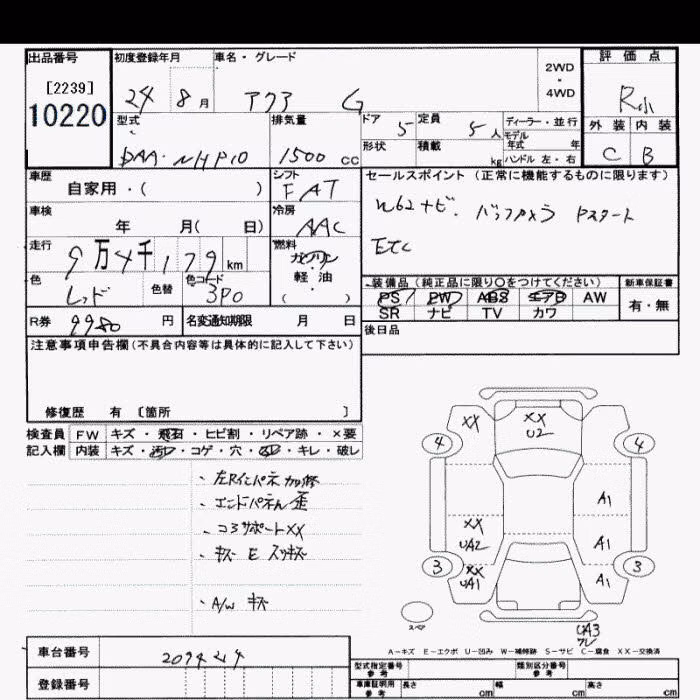 出品番号 初度登録年月 車名・グレード 2WD・4WD 評価点
[2239]
10220
24 8月 アクア G R小
型式 排気量 ドア 5 定員 5人 ディーラー・並行 外装 内装
モデル年式 年
DAA・NHP10 1500cc 形状 積載 kg ハンドル 左・右 C B
車歴 シフト セールスポイント (正常に機能するものに限ります)
自家用・( ) FAT
車検 冷房 バックカメラ Pスタート
年 月( 日) AAC ETC
走行 9万4千179km 燃料 ガソリン・軽油・( )
色 色替 色コード 装備品 (純正品に限り○をつけてください) 新車保証書
レッド 3P0 PS PW ABS エアB AW 有・無
SR ナビ TV カワ
R券 9980円 名変通知期限 月 日 後日品
注意事項申告欄(不具合内容等は具体的に記入して下さい)
修復歴 有 〔箇所 〕
検査員 FW キズ・飛石・ヒビ割・リペア跡・×要
記入欄 内装 キズ・汚レ・コゲ・穴・・キレ・破レ
・左Rインパネ加修
・エンドパネル歪
・コアサポートXX
・キズ E スリキズ
・A/W キズ
XX XX U2
4 4
A1
XX UA2 A1
3 XX UA1 A1 3
スペア
UA3
A-キズ E-エクボ U-凹み W-補修跡 S-サビ C-腐食 XX-交換済
車台番号 型式指定番号 参考 類別区分番号 参考
登録番号 車庫証明用 参考 長さ cm 幅 cm 高さ cm